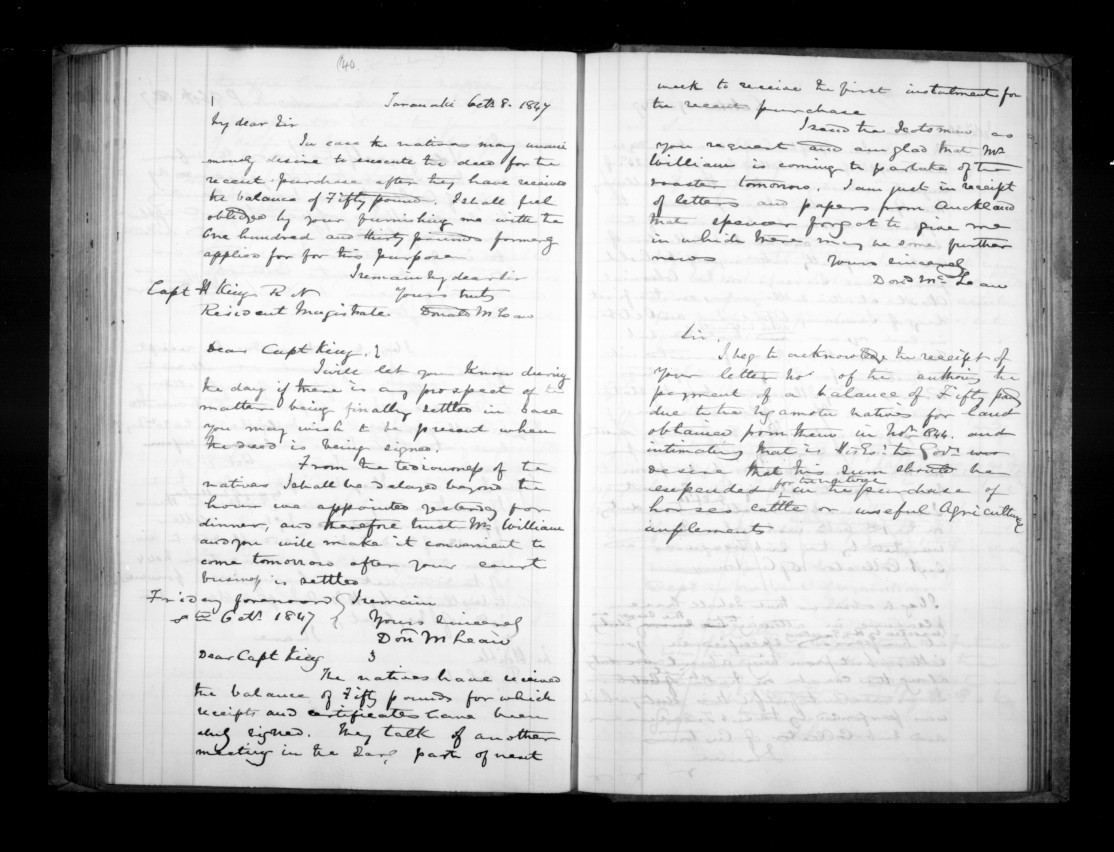 140.
1
Taranaki Octr 8. 1847
My dear Sir
In case the natives may unani
mously desire to execute the deed for the
recent purchase after they have received
the balance of Fifty pounds. I shall feel
obliged by your furnishing me with the
One hundred and thirty pounds formerly
applied for for this purpose
I remain My dear Sir
Capt H King R N Yours truly
Resident Magistrate Donald McLean
Dear Capt King. 2
I will let you know during
the day if there is any prospect of the
matter being finally settled in case
you may wish to be present when
the deed is being signed.
From the tediousness of the
natives I shall be delayed beyond the
hour we appointed yesterday for
dinner, and therefore trust Mr. William
and you will make it convenient to
come tomorrow after your court
business is settled
Friday forenoon I remain
8th Octr. 1847 Yours sincerely
Don McLean
Dear Capt King 3
The natives have received
the balance of Fifty pounds for which
receipts and certificates have been
duly signed. They talk of another
meeting in the early part of next
week to receive the first instalment for
the recent purchase
I send the Scotsman as
you request and am glad that Mr.
William is coming to partake of the
roaster tomorrow. I am just in receipt
of letters and papers from Auckland
that Spencer forgot to give me
in which there may be some further
news Yours sincerely
Dond McLean
Sir.
I beg to acknowledge the receipt of
your letter No. of the authorising the
payment of a balance of Fifty pounds
due to the Ngamotu natives for land
obtained from them in Novr. 1844. and
intimating that is His Exc. the Govr. was
desire that this sum should be
expended for the natives in the purchase of
horses cattle or useful Agricultural
implements